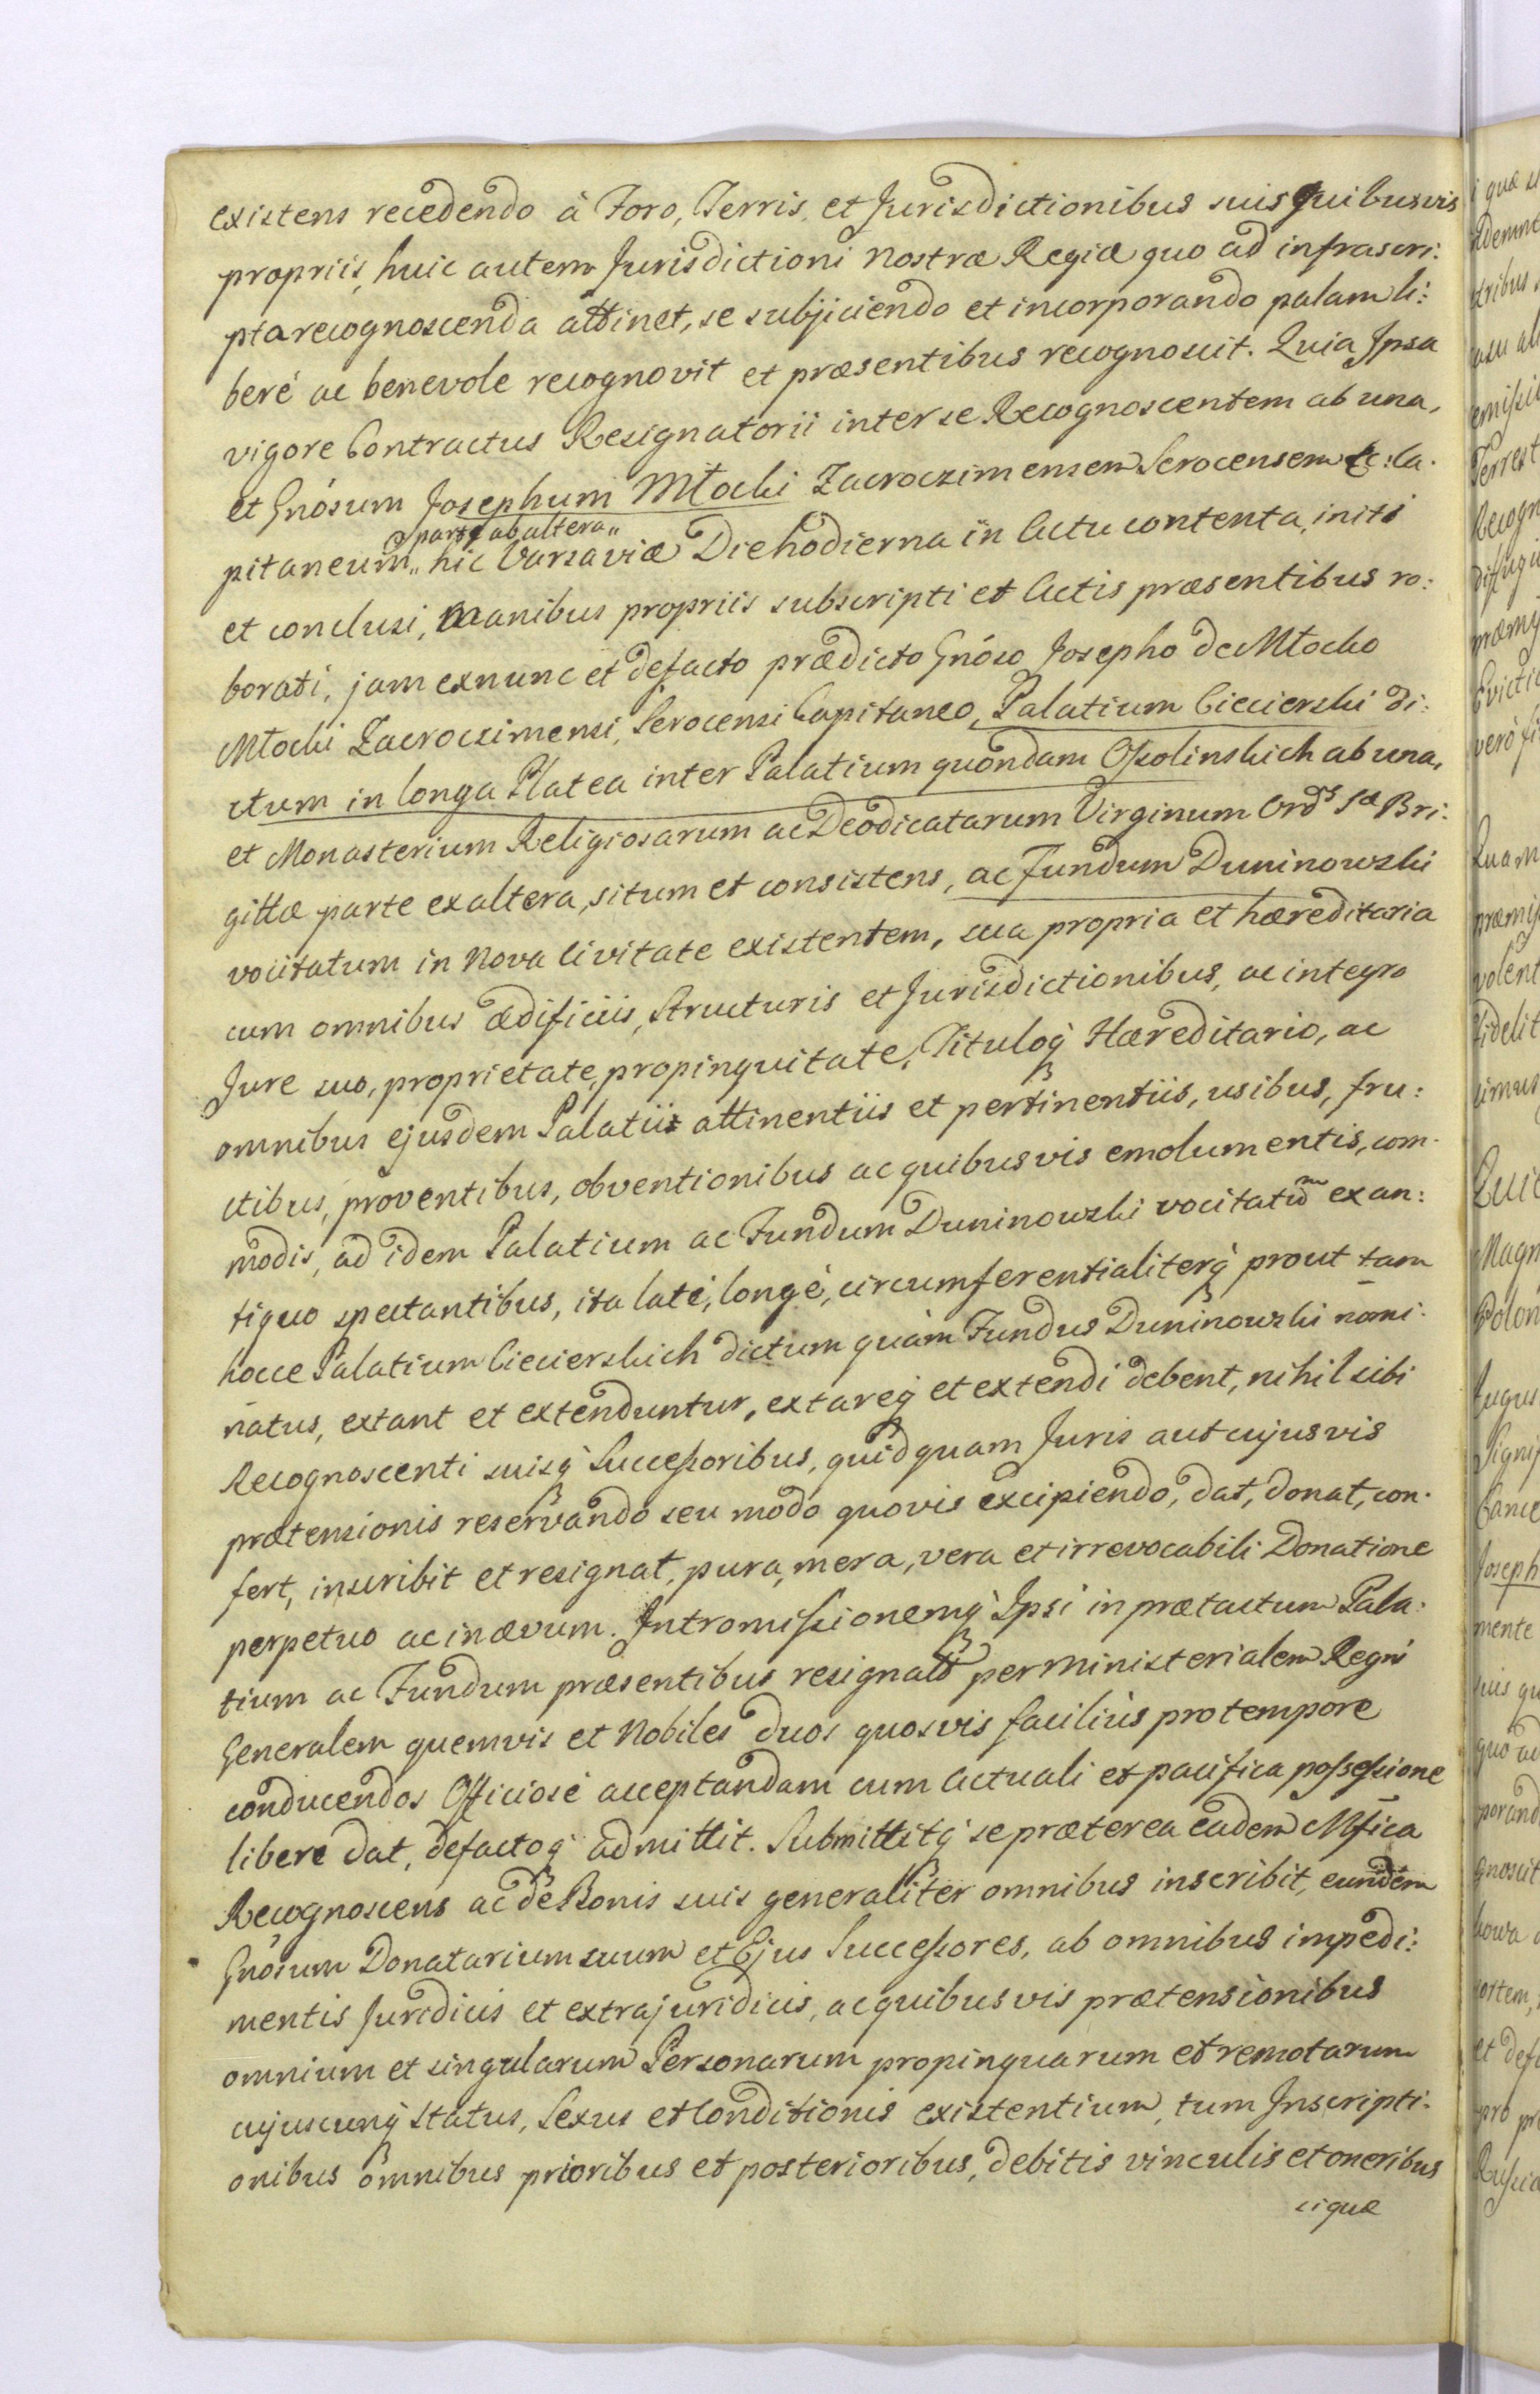 existens recedendo à Foro, Terris, et Jurisdictionibus suis quibusvis
propriis, huic autem Jurisdictioni Nostræ Regiæ quo ad infrascri:
pta recognoscenda attinet, se subjiciendo et incorporando palam li:
berè ac benevole recognovit et præsentibus recognoscit. Quia Ipsa
vigore Contractus Resignatorii inter se Recognoscentem ab una,
et Gnósum Josephum Młocki Zacroczimensem Serocensem &c: Ca.
parte ab altera„
pitaneum„ hic Varsaviæ Die hodierna in Actu contenta, initi
et conclusi, Manibus propriis subscripti et Actis præsentibus ro:
borati, jam exnunc et defacto prædicto Gnóso Josepho de Młocko
Młocki Zacroczimensi, Serocensi Capitaneo, Palatium Ciecierski di:
ctum in longa Platea inter Palatium quondam Ossolinskich ab una,
et Monasterium Religiosarum ac Deodicatarum Virginum Ords Sæ Bri:
gittæ parte ex altera, situm et consistens, ac Fundum Duninowski
vocitatum in Nova Civitate existentem, sua propria et hæreditaria
cum omnibus ædificiis, Structuris et Jurisdictionibus, ac integro
Jure suo, proprietate, propinquitate, Tituloq́ Hæreditario, ac
omnibus ejusdem Palatii attinentiis et pertinentiis, usibus, fru:
ctibus, proventibus, obventionibus ac quibusvis emolumentis, com.
modis, ad idem Palatium ac Fundum Duninowski vocitatum ex an:
tiquo spectantibus, ita latè, longè, circumferentialiterq́ prout tam
hocce Palatium Ciecierskich dictum quàm Fundus Duninowski nomi.
natus, extant et extenduntur, extareq́ et extendi debent, nihil sibi
Recognoscenti suisq́ Successoribus, quidquam Juris aut cujusvis
prætensionis reservando seu modo quovis excipiendo, dat, donat, con.
fert, inscribit et resignat, pura, mera, vera et irrevocabili Donatione
perpetuo ac in ævum. Intromissionemq́ Ipsi in prætactum Pala.
tium ac Fundum præsentibus resignat per Ministerialem Regni
Generalem quemvis et Nobiles duos quosvis faciliùs pro tempore
conducendos Officiosè acceptandam cum Actuali et pacifica possessione
liberè dat, defactoq́ admittit. Submittitq́ se præterea eadem Mfica
Recognoscens ac de Bonis suis generaliter omnibus inscribit, eundem
Gnósum Donatarium suum et Ejus Successores, ab omnibus impedi:
mentis Juridicis et extrajuridicis, ac quibusvis prætensionibus
omnium et singularum Personarum propinquarum et remotarum
cujuscunq́ Status, Sexus et Conditionis existentium, tum Inscripti.
onibus omnibus prioribus et posterioribus, debitis vinculis et oneribus
siquæ